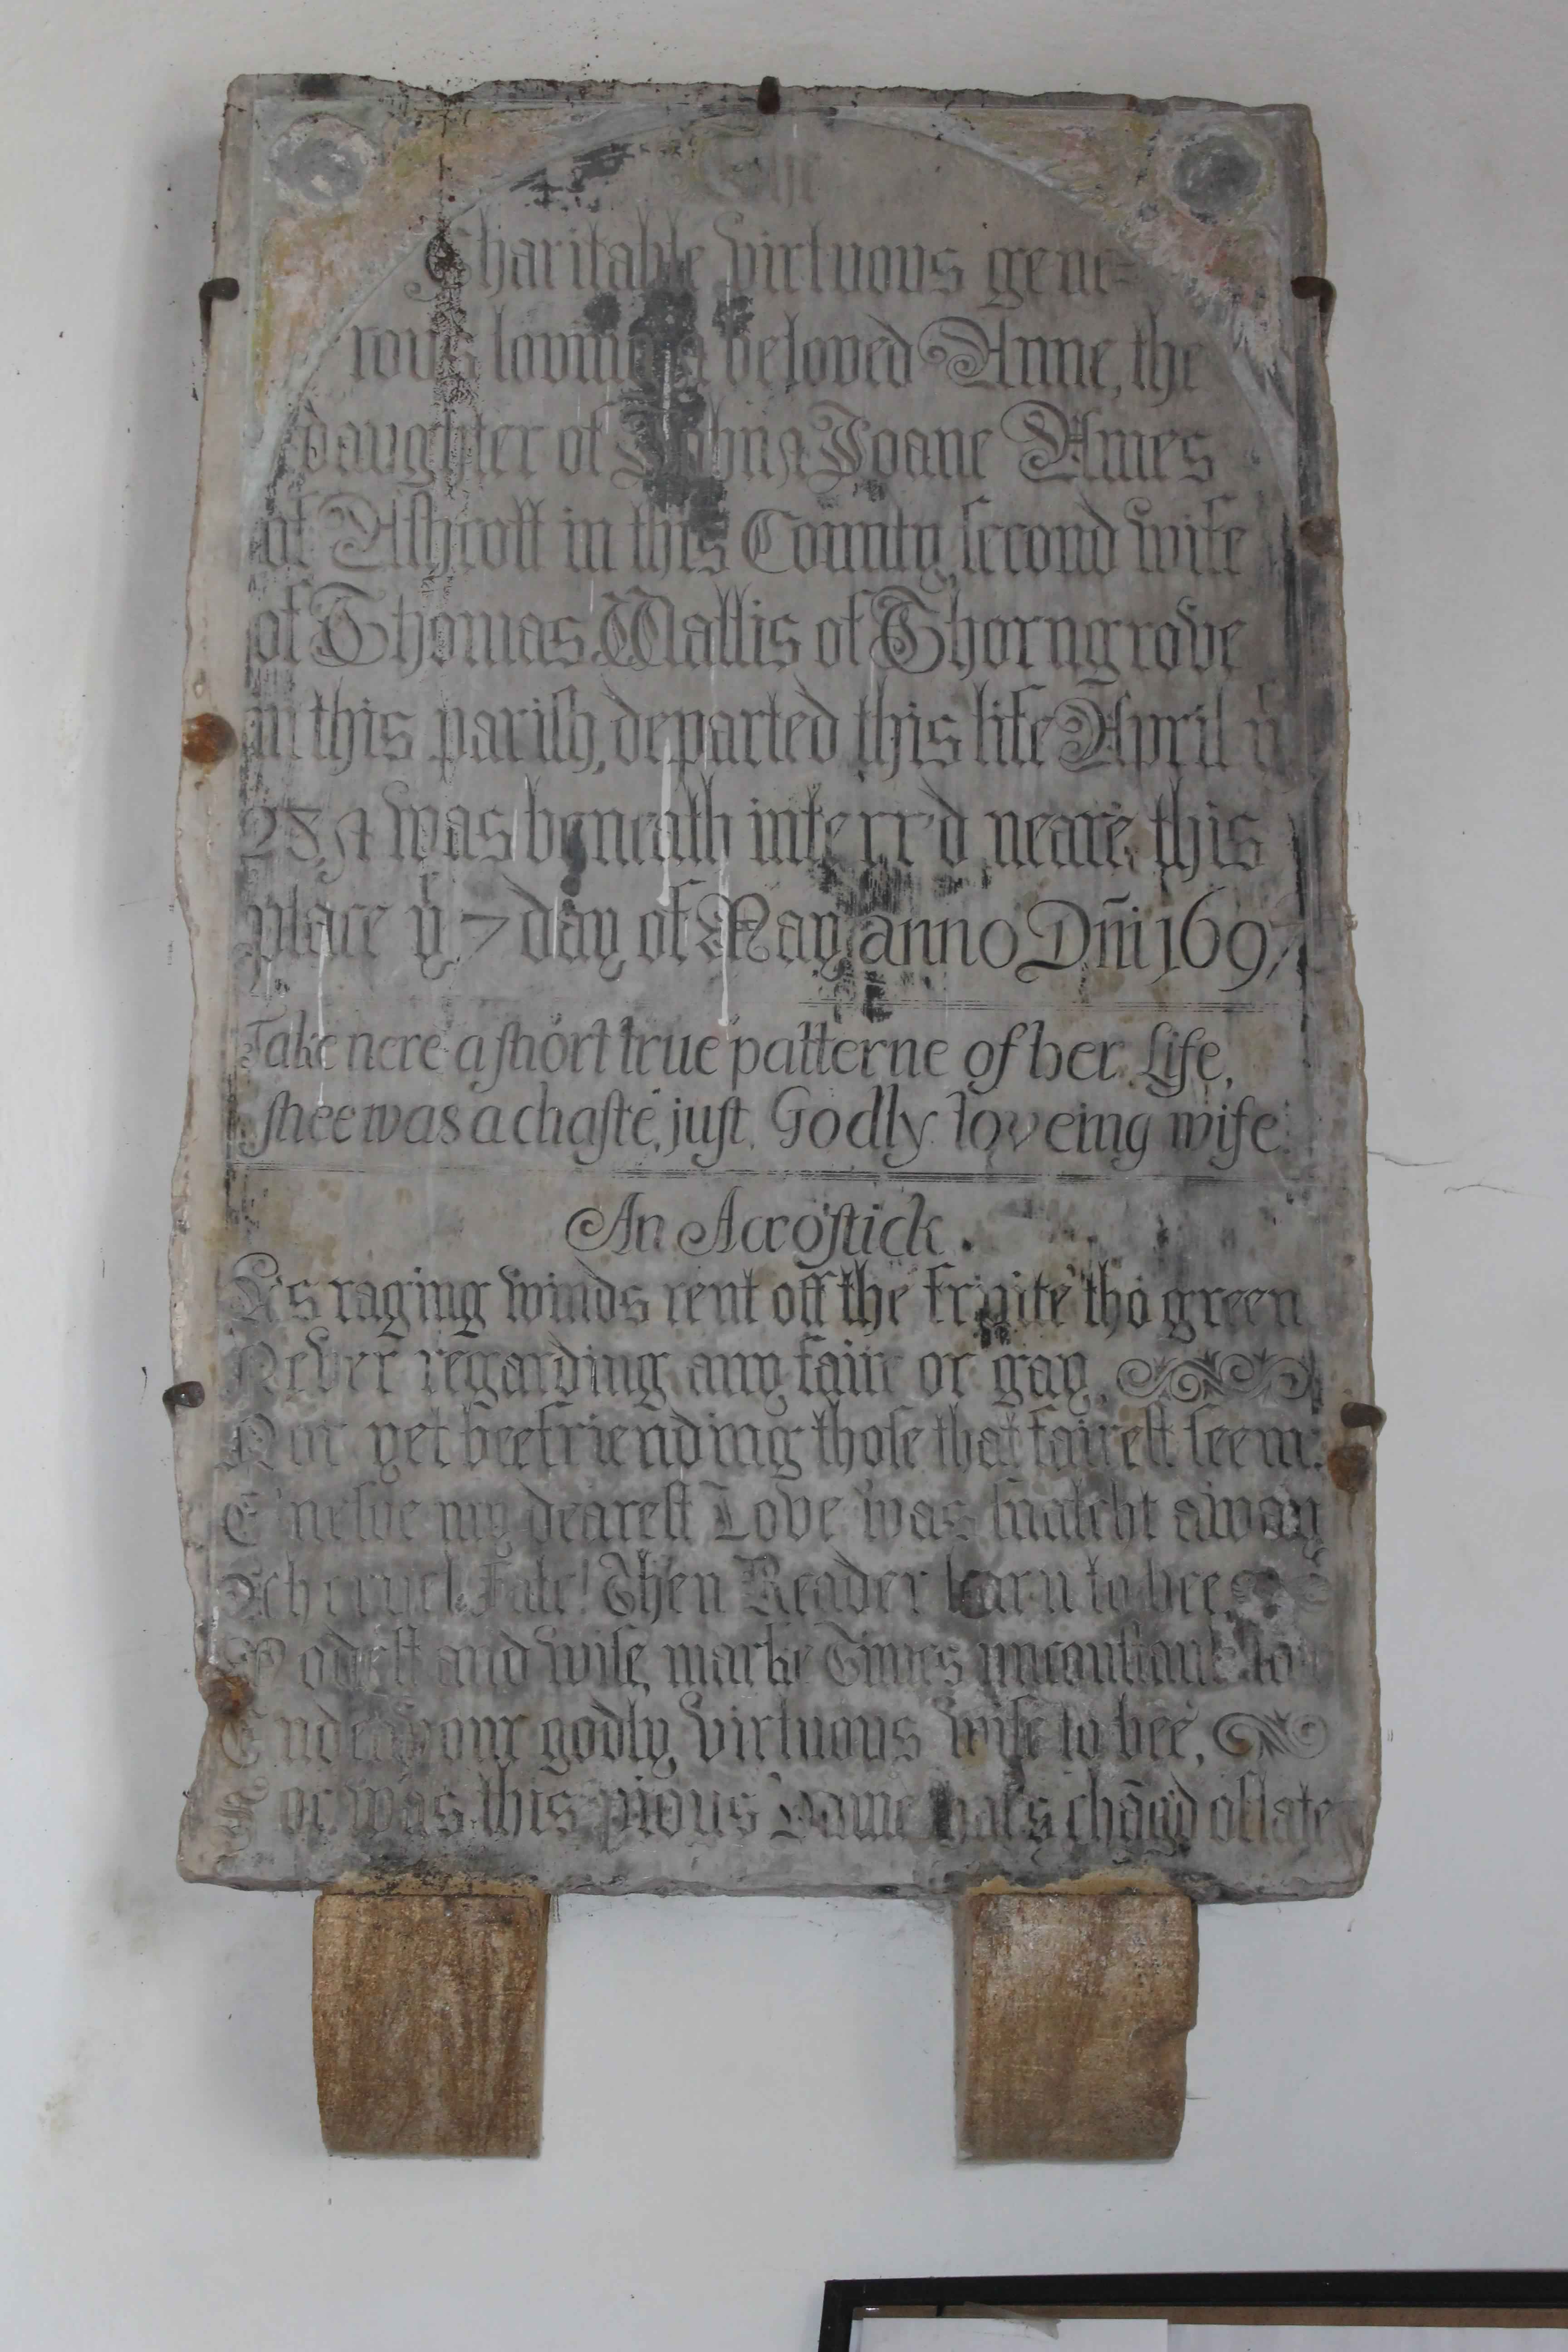 The
Charitable virtuous gene=
rous loving & beloved Anne, the
daughter of John & Joane Ames
of Ashcott in this County, second wife
of Thomas Wallis of Thorngrove
in this parish, departed this life April yͤ
28, & was beneath interr'd neare this
place yͤ 7 day of May anno Dm̃i 1697
Take here a short true patterne of her Life,
shee was a chaste, just, Godly loveing wife.
An Acrostick.
As raging winds rent off the fruite tho green
Never regarding any faire or gay,
Nor yet beefriending those that fairest seem:
E'ne soe my dearest Love was snatcht away
Ach cruel Fate! Then Reader learn to bee,
Modest and wise, marke Times unconstant
Endeavour godly, virtuous wise to bee,
Soe was this pious Dame that's chāg'd of late